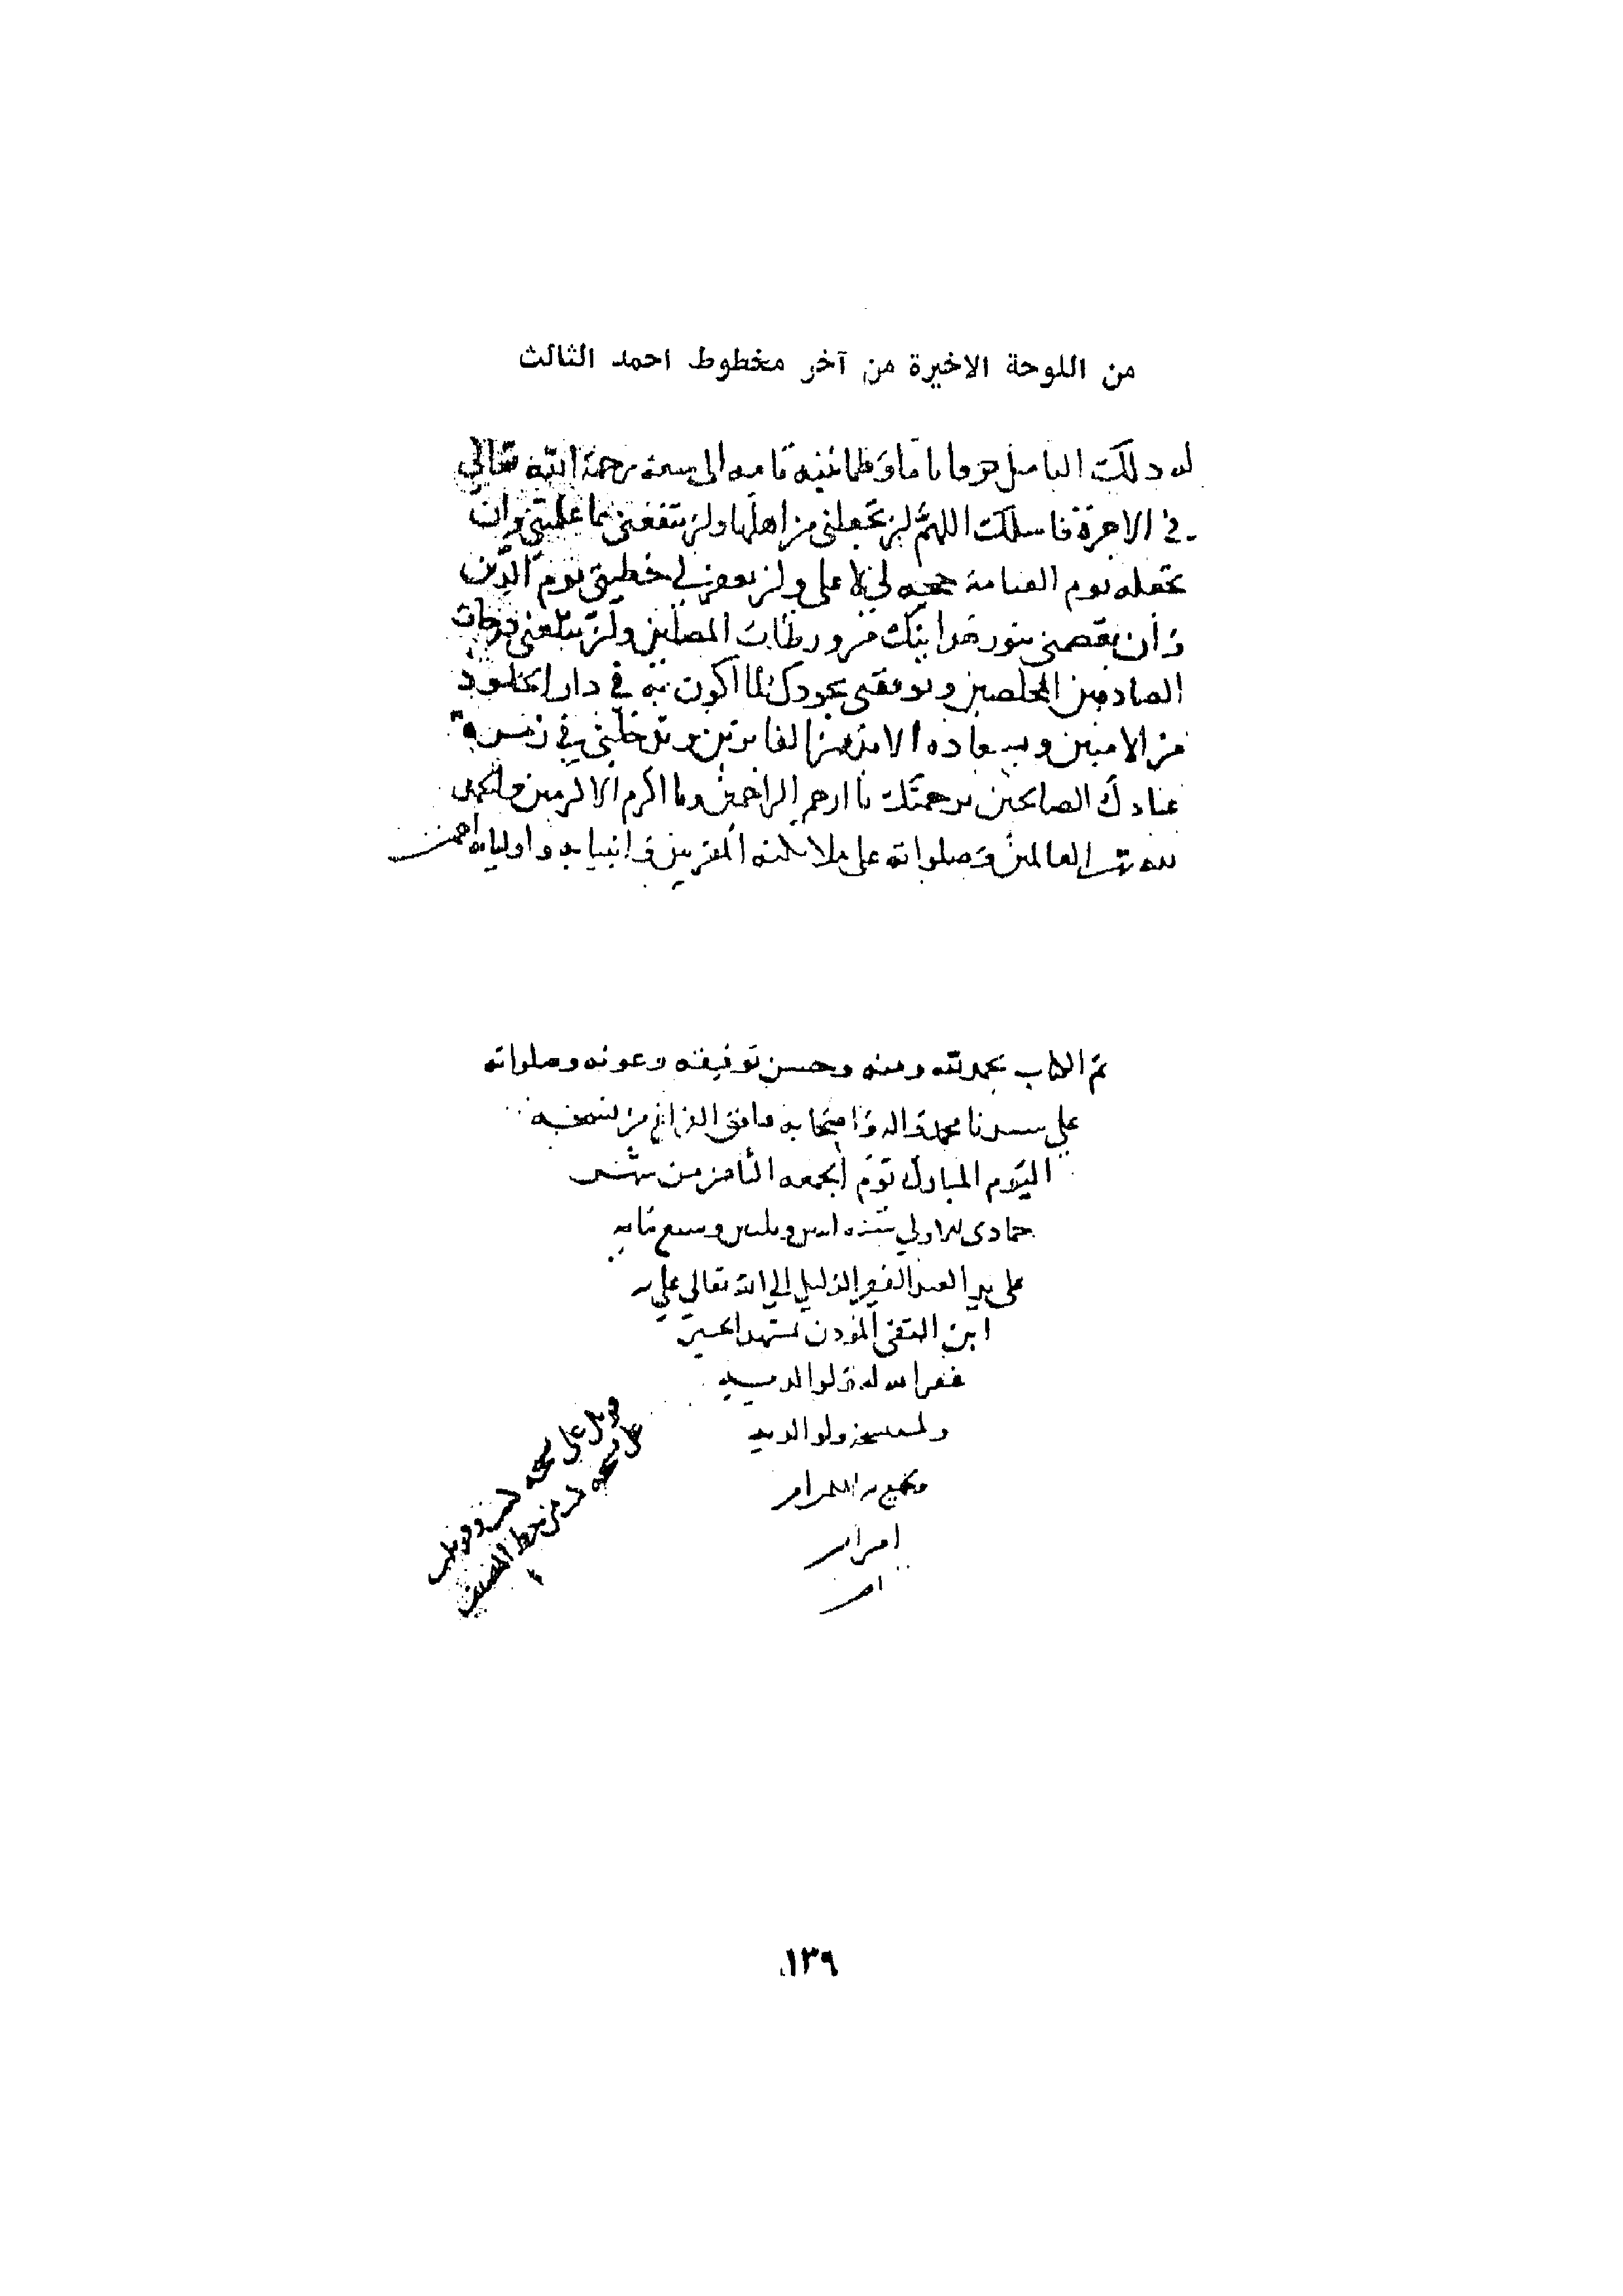 من اللوحة الاخيرة من آخر مخطوط احمد الثالث
له ذلك التأميل خوفا باماوطمانينه تامه الى سعة رحمة الله تعالى
في الاخرة فاسلك اللهم ان تجعلنى من اهلها وان تنفعنى بما علمتنى وان
تجعله يوم القيامة حجه لي لا على وان تغفر لي خطيئتى يوم الدين
وان تعصمنى بنور هدايتك من ورطات المضلين وان تبلغنى درجات
الصادقين المخلصين وتوفقنى بجودك لما اكون به في دار الخلود
من الامنين وبسعادة الابد من الفايزين وتدخلنى في زمرة
عبادك الصالحين برحمتك يا ارحم الراحمين ويا اكرم الاكرمين والحمد
لله رب العالمين وصلواته على ملائكته المقربين وانبيايه واوليايه اجمعين
تم الكتاب بحمد الله ومنه وحسن توفيقه وعونه وصلواته
على سيدنا محمد واله واصحابه وافق الفراغ من نسخه
اليوم المبارك يوم الجمعه الثامن من شهر
جمادى الاولي سنه اثنين وثلثين وسبع مايه
على يد العبد الفقير الذليل إلي الله تعالى علي
ابن المؤذن بمشهد الحسين
غفر الله له ولوالديه
ولمن ولوالديه
امين
امين
قوبل على نسخه
على نسخه بخط المصنف
١٣٩